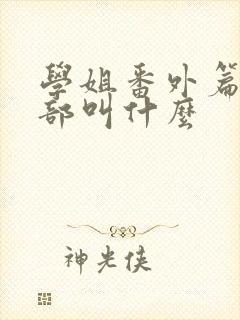 學姐番外篇
部叫什麼
神光俠